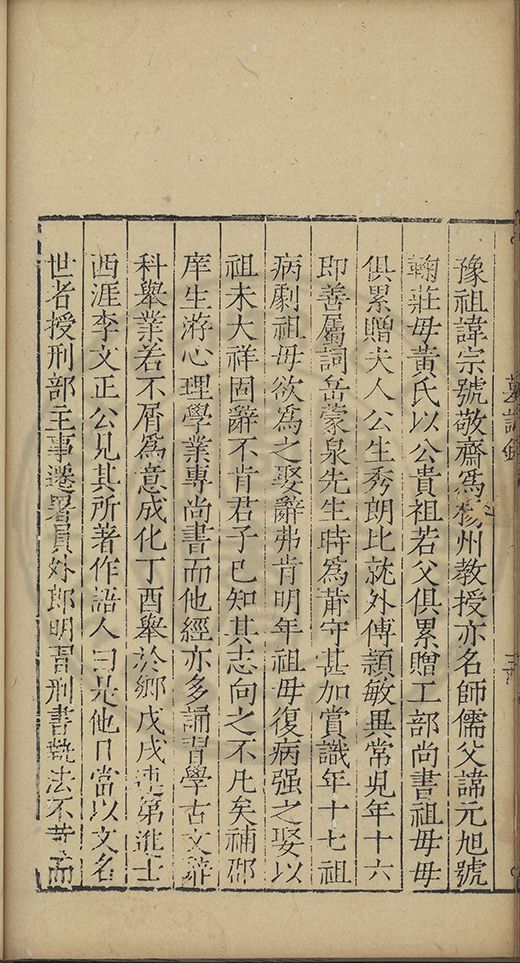 豫祖諱宗號敬齋爲楊州教授亦名師儒父諱元旭號
鞠莊母黃氏以公貴祖若父俱累贈工部尚書祖母母
俱累贈夫人公生秀朗比就外傅頴敏異常兒年十六
即善屬詞岳蒙泉先生時爲莆守甚加賞識年十七祖
病劇祖母欲爲之娶辭弗肯明年祖母復病强之娶以
祖未大祥固辭不肯君子已知其志向之不凡矣補郡
庠生游心理學業專尚書而他經亦多誦習學古文辭
科舉業若不屑爲意成化丁酉舉於鄉戊戌連第進士
西涯李文正公見其所著作語人曰是他日當以文名
世者授刑部主事遷署員外郎明習刑書執法不苛而